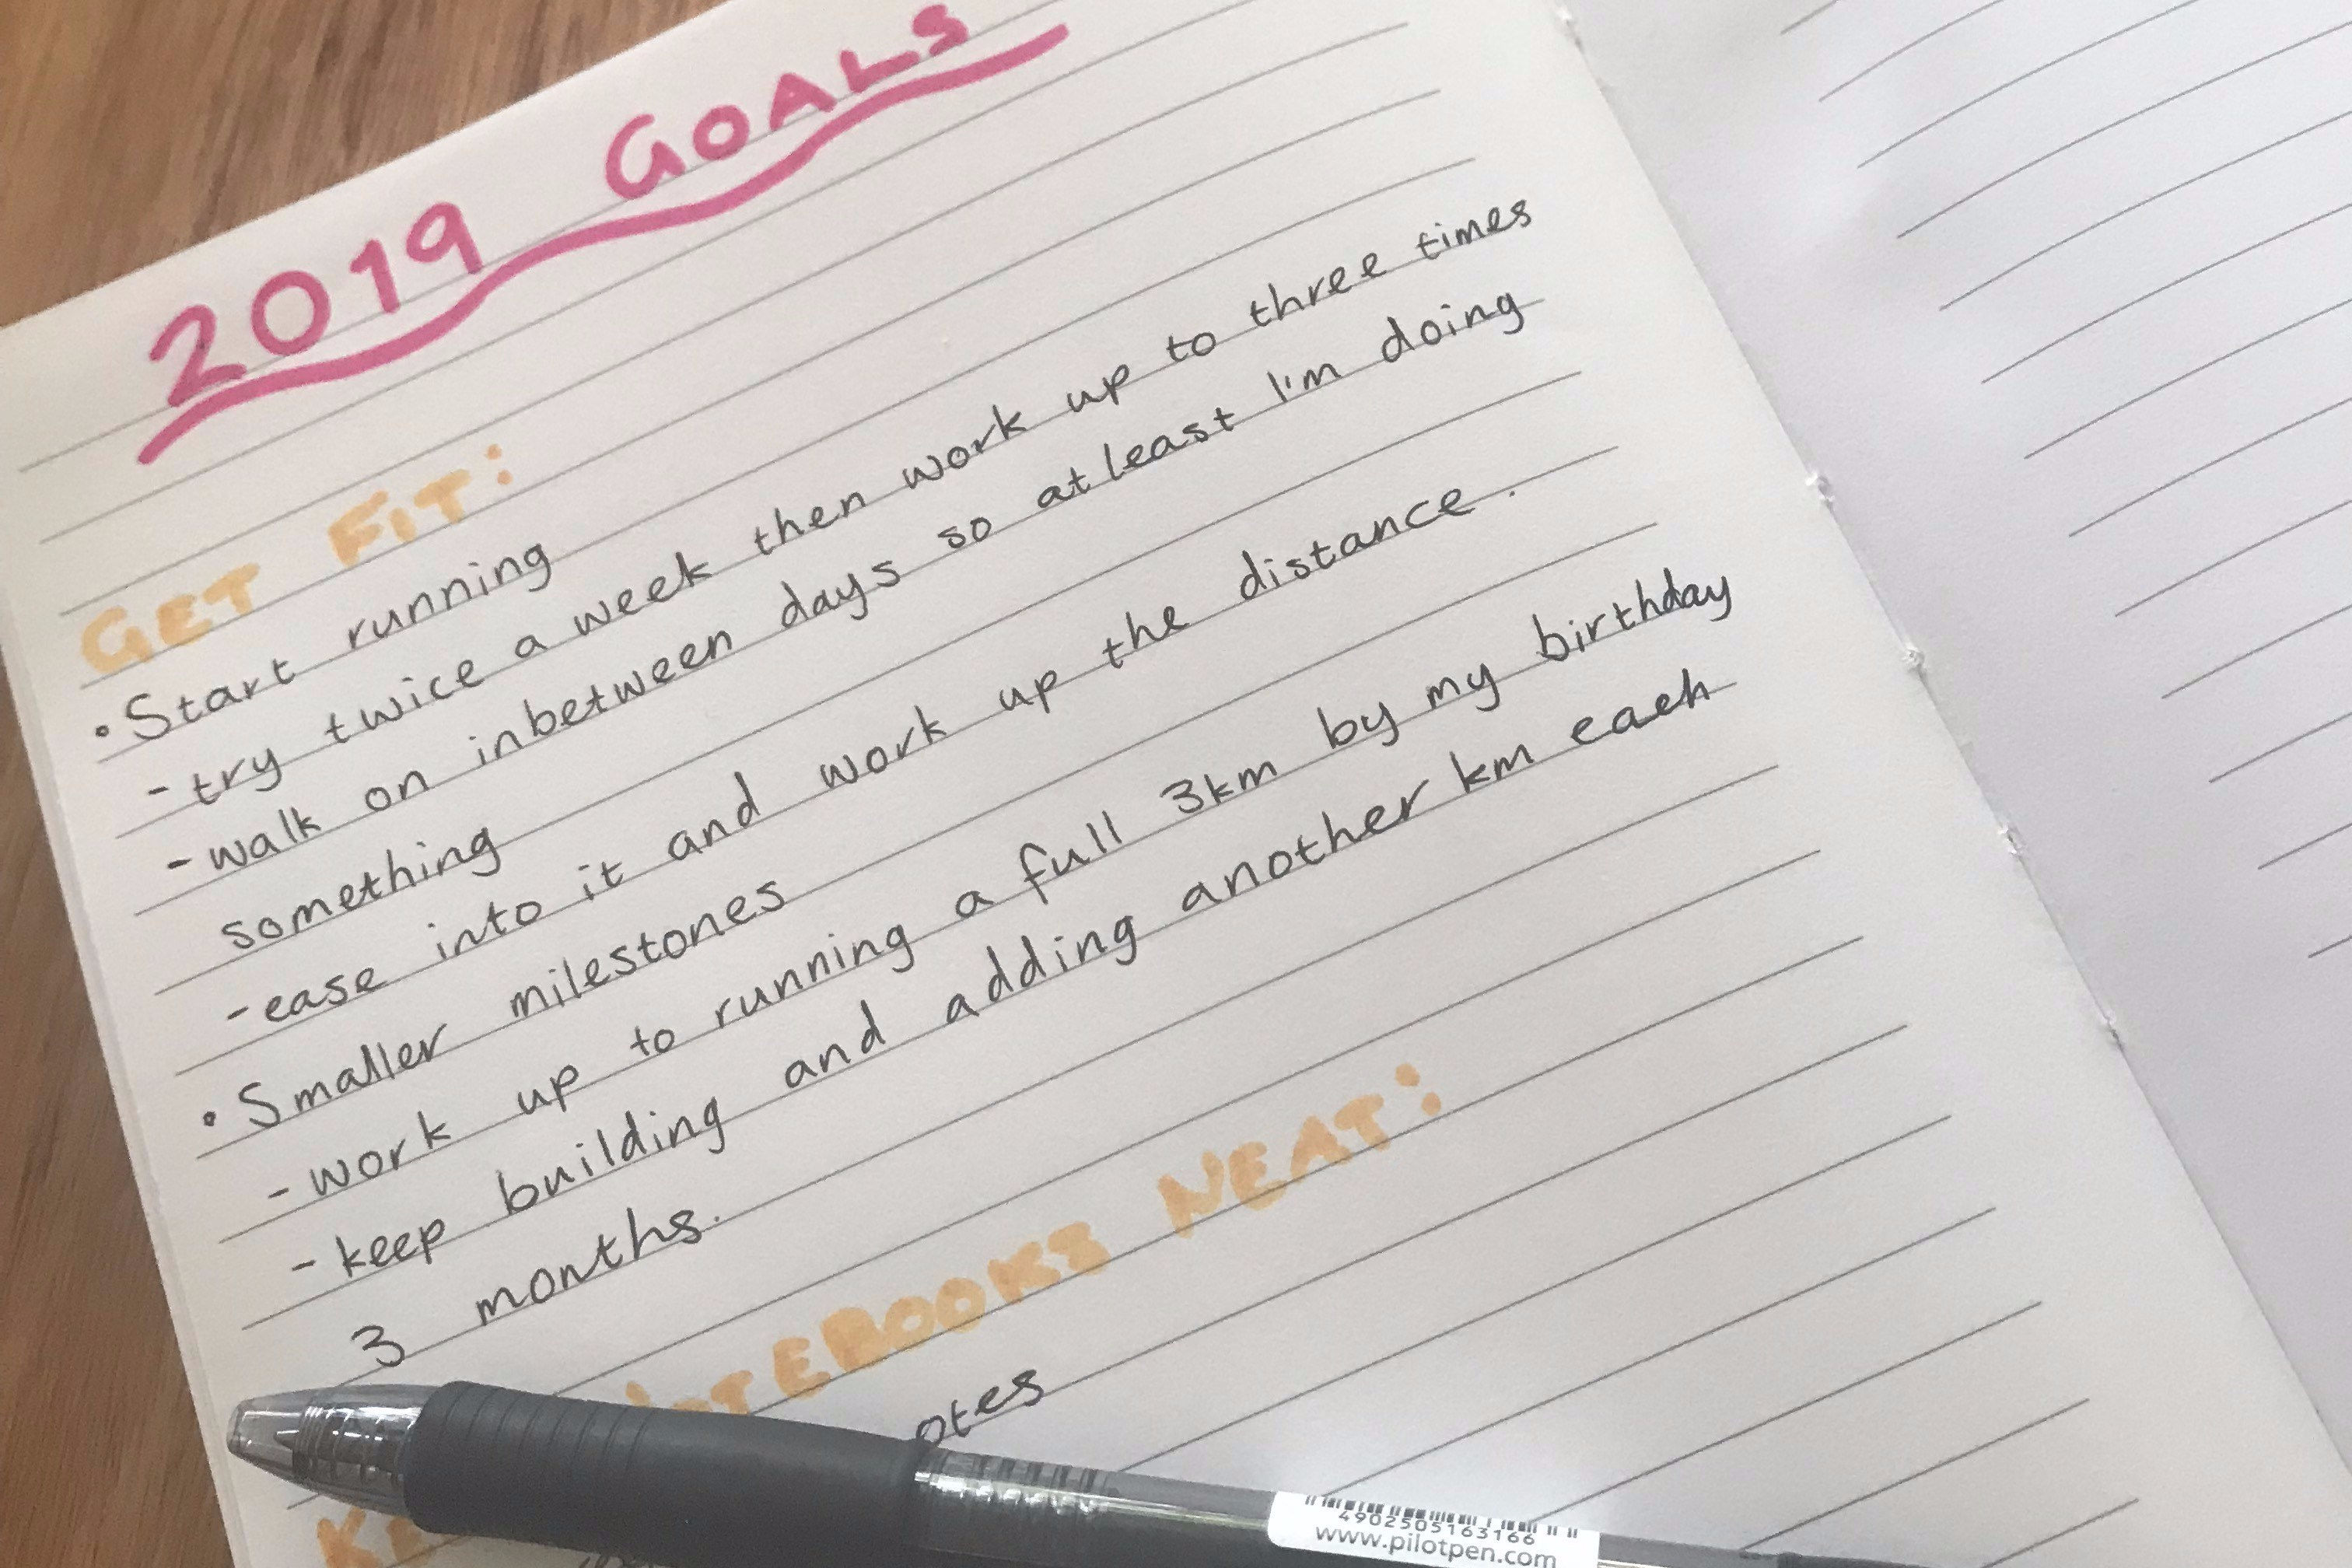 2019 GOALS
GET FIT:
• Start running
- try twice a week then work up to three times
- walk on inbetween days so at least I'm doing
something
- ease into it and work up the distance.
• Smaller milestones
- work up to running a full 3km by my birthday
- keep building and adding another km each
3 months.
NOTEBOOKS NEAT:
otes
4902505163166
www.pilotpen.com